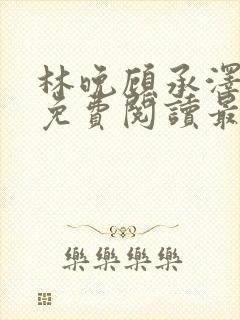 林晚顾承澤
免費閱讀最
樂樂樂樂